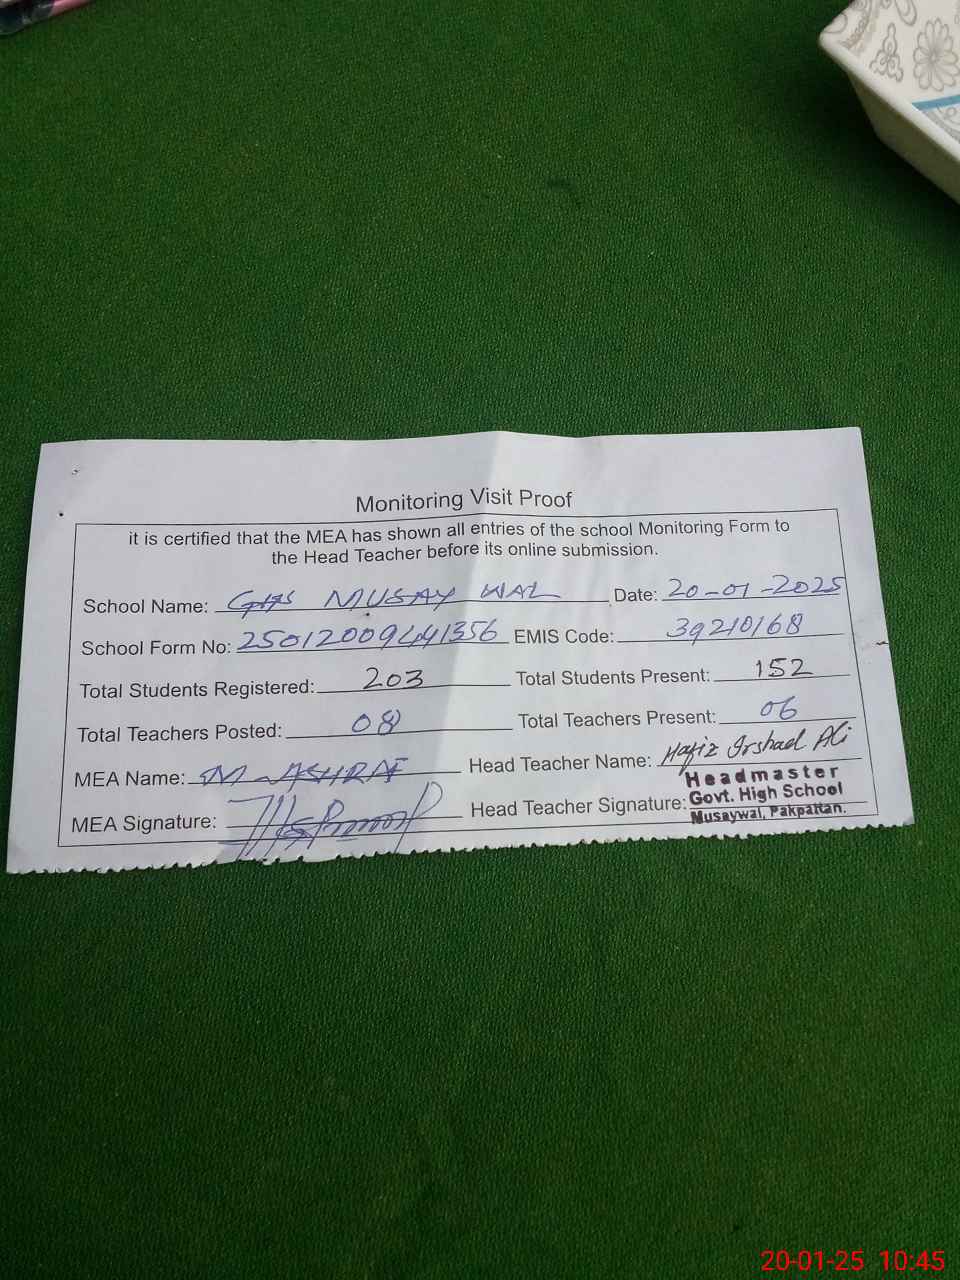 Monitoring Visit Proof
it is certified that the MEA has shown all entries of the school Monitoring Form to
the Head Teacher before its online submission.
School Name: GHS MUSAY WAL Date: 20-01-2025
School Form No: EMIS Code: 39210168
Total Students Registered: 203 Total Students Present: 152
Total Teachers Posted: 08 Total Teachers Present: 06
MEA Name: M-ASHRAF Head Teacher Name: Hafiz Irshad Ali
MEA Signature: Head Teacher Signature:
Headmaster
Govt. High School
Musaywal, Pakpattan.
20-01-25 10:45